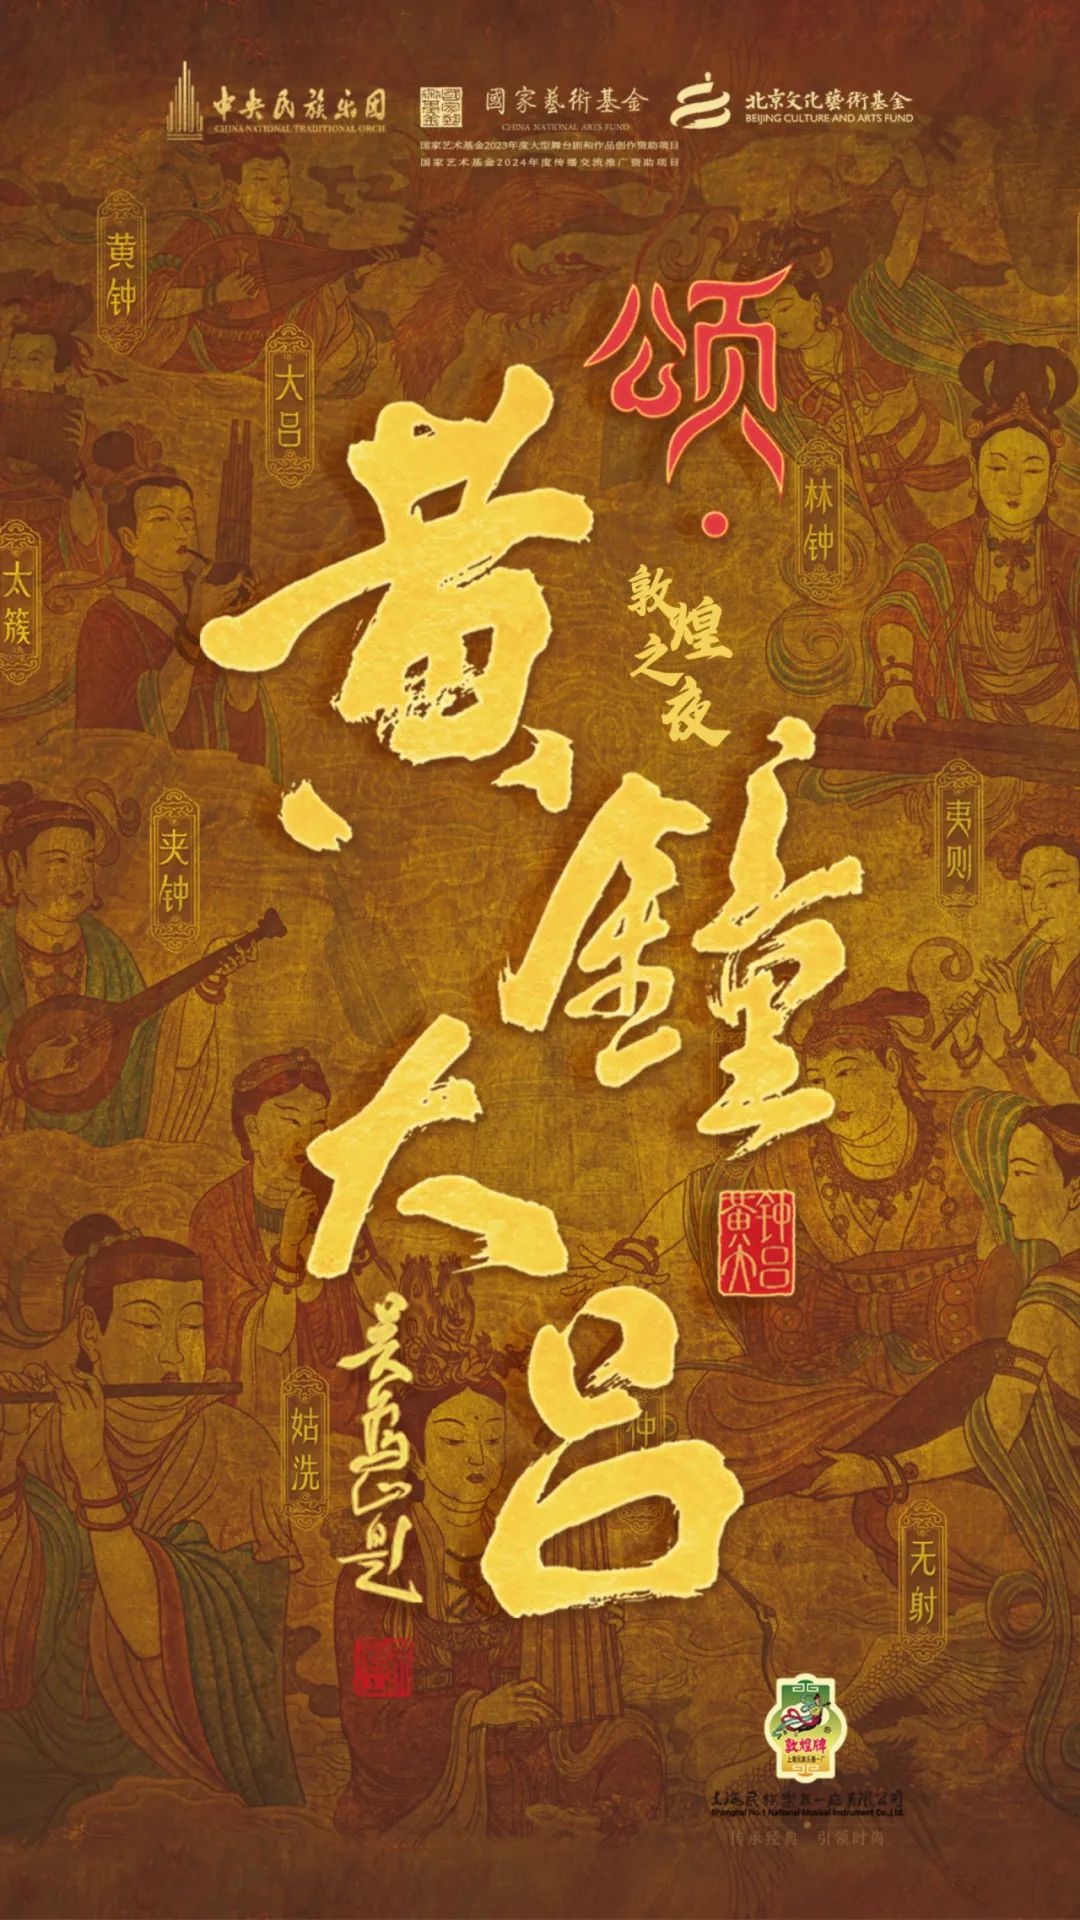 中央民族乐团
CHINA NATIONAL TRADITIONAL ORCH.
國家藝術基金
CHINA NATIONAL ARTS FUND
国家艺术基金2023年度大型舞台剧和作品创作资助项目
国家艺术基金2024年度传播交流推广资助项目
北京文化藝術基金
BEIJING CULTURE AND ARTS FUND
颂·
敦煌之夜
黄鐘大吕
黄钟大吕
吴为山题
黄钟
大吕
太簇
夹钟
姑洗
仲
林钟
夷则
无射
敦煌牌
®
上海民族乐器一厂
上海民族樂器一厰有限公司
Shanghai No.1 National Musical Instrument Co.,Ltd.
传承经典 引领时尚